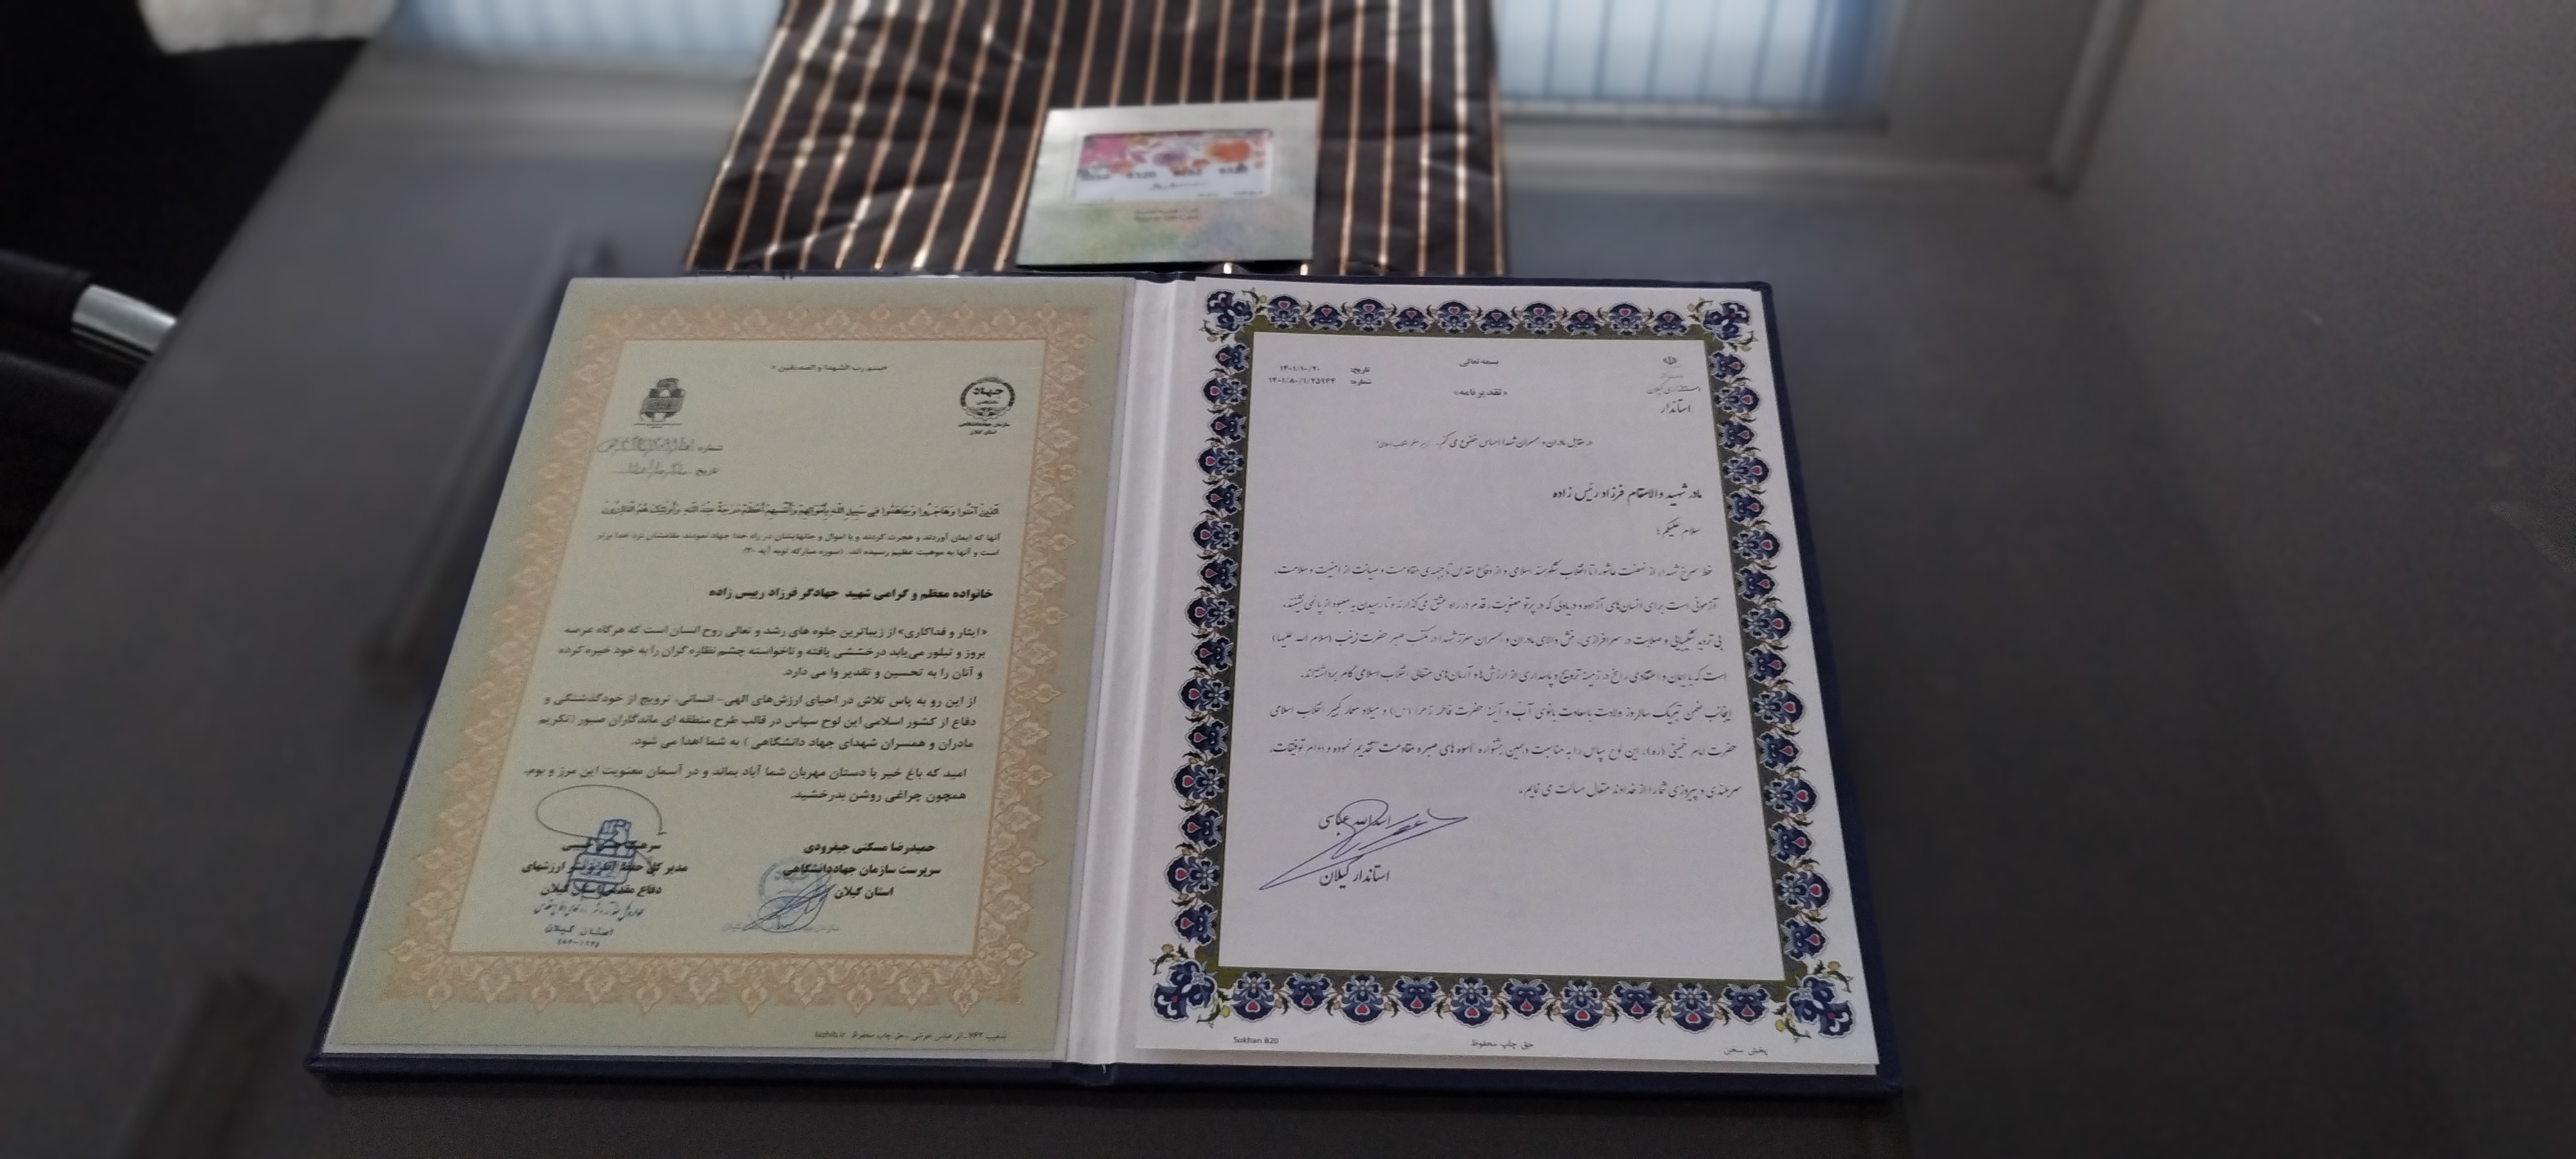 بسمه تعالی
تاریخ: ۱۴۰۱/۱۰/۲۰
شماره: ۱۴۰۱/۸۰/۱/۲۵۹۴۴
«تقدیرنامه»
استانداری گیلان
استاندار
در مقابل مادران و همسران شهدا احساس خضوع می کنم.
مادر شهید والامقام فرزاد رئیس زاده
سلام علیکم؛
خط سرخ شهدا، از نهضت عاشورا تا انقلاب شکوهمند اسلامی و از دفاع مقدس تا جبهه‌ی مقاومت و صیانت از امنیت و سلامت،
آزمونی است برای انسان‌های آزاده و دریادلی که در پرتو معنویت، قدم در راه عشق می گذارند و تا رسیدن به معبود از پا نمی نشینند.
بی تردید شکیبایی و صلابت در سرافرازی، نقش والای مادران و همسران معزز شهدا در مکتب صبر حضرت زینب (سلام الله علیها)
است که با ایمان و اعتقادی راسخ در زمینه ترویج و پاسداری از ارزش‌ها و آرمان‌های متعالی انقلاب اسلامی گام برداشته‌اند.
اینجانب ضمن تبریک سالروز ولادت باسعادت بانوی آب و آئینه حضرت فاطمه زهرا (س) و میلاد معمار کبیر انقلاب اسلامی
حضرت امام خمینی (ره)، این لوح سپاس را به مناسبت دهمین جشنواره اسوه های صبر و مقاومت تقدیم نموده و دوام توفیقات،
سربلندی و پیروزی شما را از خداوند متعال مسالت می نمایم.
اسدالله عباسی
استاندار گیلان
پخش سخن
حق چاپ محفوظ
Sokhan B20
«بسم رب الشهدا و الصدیقین»
جهاد
سازمان جهاددانشگاهی
استان گیلان
شماره
تاریخ
الَّذِينَ آمَنُوا وَهَاجَرُوا وَجَاهَدُوا فِي سَبِيلِ اللَّهِ بِأَمْوَالِهِمْ وَأَنْفُسِهِمْ أَعْظَمُ دَرَجَةً عِنْدَ اللَّهِ وَأُولَئِكَ هُمُ الْفَائِزُونَ
آنها که ایمان آوردند و هجرت کردند و با اموال و جانهایشان در راه خدا جهاد نمودند، مقامشان نزد خدا برتر
است و آنها به موهبت عظیم رسیده اند. (سوره مبارکه توبه آیه ۲۰)
خانواده معظم و گرامی شهید جهادگر فرزاد رییس زاده
«ایثار و فداکاری» از زیباترین جلوه های رشد و تعالی روح انسان است که هرگاه عرصه
بروز و تبلور می‌یابد درخششی یافته و ناخواسته چشم نظاره گران را به خود خیره کرده
و آنان را به تحسین و تقدیر وا می دارد.
از این رو به پاس تلاش در احیای ارزش‌های الهی- انسانی، ترویج از خودگذشتگی و
دفاع از کشور اسلامی این لوح سپاس در قالب طرح منطقه ای ماندگاران صبور (تکریم
مادران و همسران شهدای جهاد دانشگاهی) به شما اهدا می شود.
امید که باغ خیر با دستان مهربان شما آباد بماند و در آسمان معنویت این مرز و بوم،
همچون چراغی روشن بدرخشید.
حمیدرضا مسکنی جیفرودی
سرپرست سازمان جهاددانشگاهی
استان گیلان
سرهنگ
مدیر کل حفظ آثار و نشر ارزشهای
دفاع مقدس استان گیلان
استان گیلان
حق چاپ محفوظ tazhib.ir